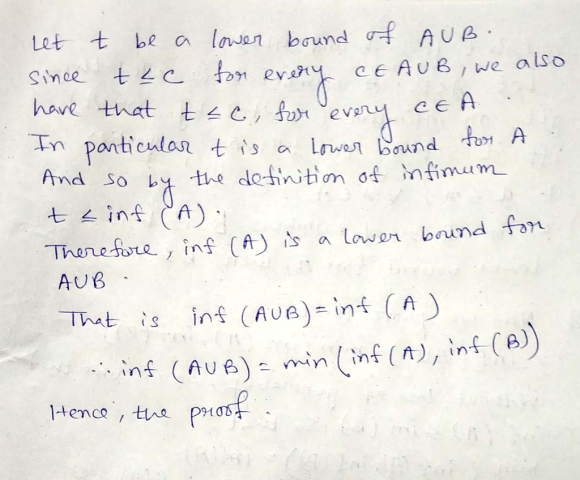 Let t be a lower bound of A∪B.
Since t ≤ c for every c ∈ A∪B, we also
have that t ≤ c, for every c ∈ A.
In particular t is a lower bound for A
And so by the definition of infimum
t ≤ inf (A).
Therefore, inf (A) is a lower bound for
A∪B.
That is inf (A∪B) = inf (A)
∴ inf (A∪B) = min (inf (A), inf (B))
Hence, the proof.